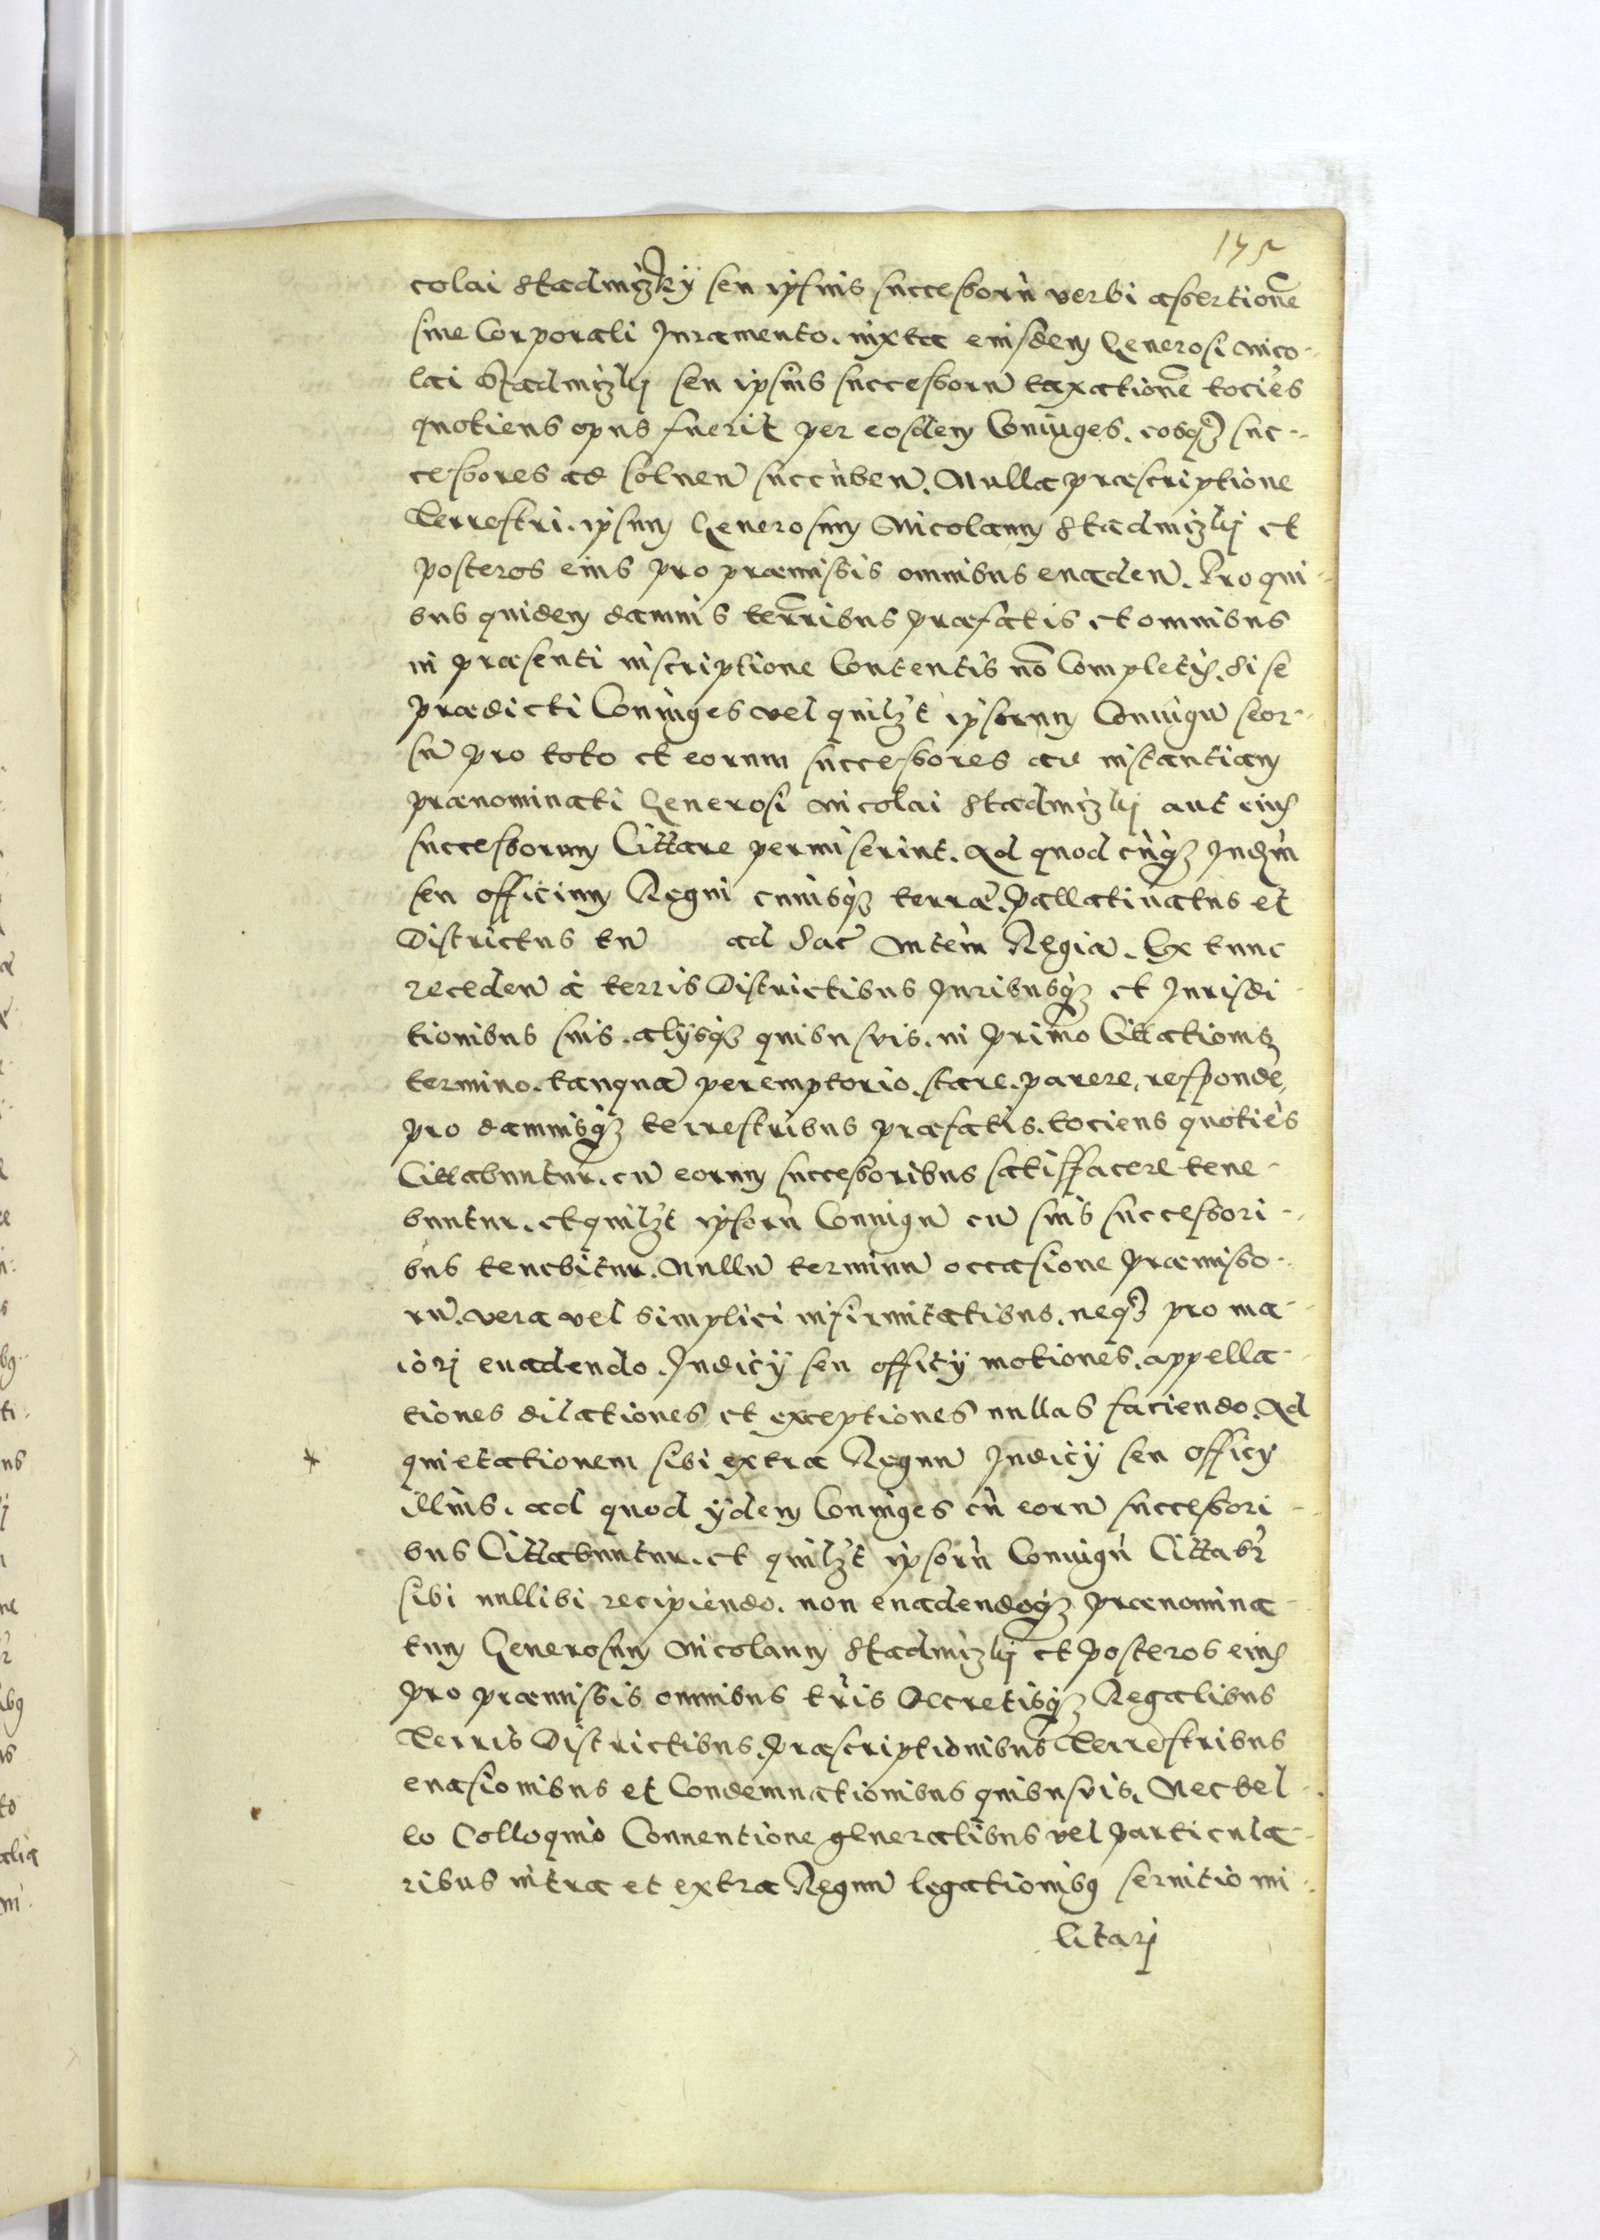 175
colai Stadniczky seu ipsius successorū verbi assertionē
sine Corporali Juramento. iuxta eiusdem Generosi Nico-
lai Stadniczky seu ipsius successorū taxationē tociēs
quotiens opus fuerit per eosdem Coniuges. eosq₃ suc-
cessores ad soluen̄ succūben̄. Nulla præscriptione
Terrestri. ipsum Generosum Nicolaum Stadniczky et
posteros eius pro præmissis omnibus euaden̄. Pro qui-
bus quidem damnis terr̄ribus præfatis et omnibus
in præsenti inscriptione Contentis nō Completis. Si se
prædicti Coniuges vel quilz̄t ipsorum Coniugū seor-
sū pro toto et eorum successores ad instantiam
prænominati Generosi Nicolai Stadniczky aut eius
successorum Cittare permiserint. Ad quod cūq₃ Judm̄
seu officium Regni cuiusq₃ terræ. Pallatinatus et
Districtus tū ad Sac̄ Mtēm Regiā. Ex tunc
receden̄ à terris Districtibus Juribusq₃ et Jurisdi-
tionibus suis. alijsq₃ quibusuis. in primo Cittationis
termino. tanquā peremptorio. stare. parere, respondē,
pro damnisq₃ terrestribus præfatis. tociens quotiēs
Cittabuntur. cū eorum successoribus satisfacere tene-
buntur. et quilz̄t ipsorū Coniugū cū suis successori-
bus tenebitur. Nullū terminū occasione præmisso-
rū. vera vel simplici infirmitatibus. neq₃ pro ma-
iorj euadendo. Judicij seu officij motiones. appella-
tiones dilationes et exceptiones nullas faciendo. Ad
* quietationem sibi extra Regnū Judicij seu officij
illius. ad quod ijdem Coniuges cū eorū successori-
bus Cittabuntur. et quilz̄t ipsorū Coniugū Cittabr̄
sibi nullibi recipiendo. non euadendoq₃ prænomina-
tum Generosum Nicolaum Stadniczky et posteros eius
pro præmissis omnibus tr̄is Decretisq₃ Regalibus
Terris Districtibus. Præscriptionibus Terrestribus
euasionibus et Condemnationibus quibusuis. Nec bel-
lo Colloquio Conuentione generalibus vel particula-
ribus intra et extra Regnū legationibꝯ seruitio mi-
litarj